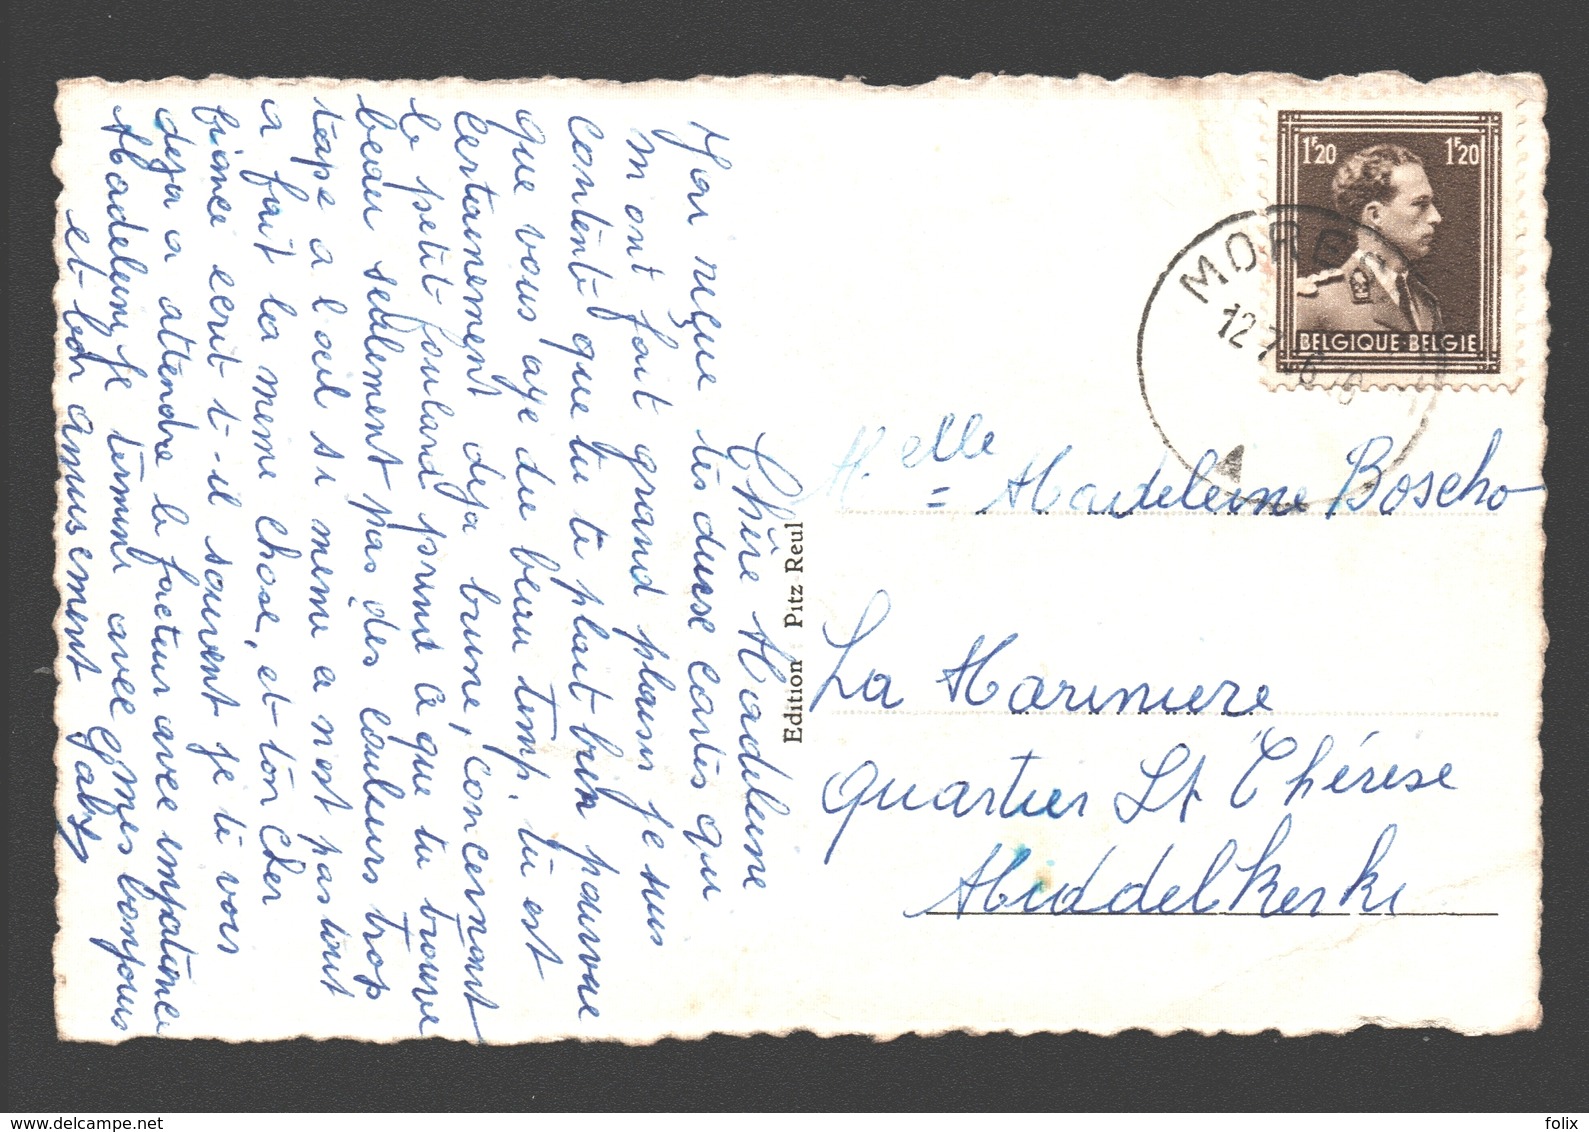 Chère Madeleine
J'ai reçue tes deuse cartes qu
m ont fait grand plaisir je suis
contente que tu te plait bien pourvue
que vous aye du beau temp. tu est
certainement deja brune, concernant
le petit foulard prend ce que tu trouve
beau seulement pas des couleurs trop
tape a l'oeil si meme a n'est pas tout
a fait la meme chose, et ton cher
fiance ecrit t-il souvent je te vois
deja a attendre le facteur avec impatience
Madeleine je termine avec mes bonjours
et bon amusement Gaby
Edition Pitz Reul
1F20 1F20
BELGIQUE BELGIE
12 7
Melle = Madeleine Boscho
La Mariniere
Quartier St Thérèse
Middelkerke
www.delcampe.net
folix